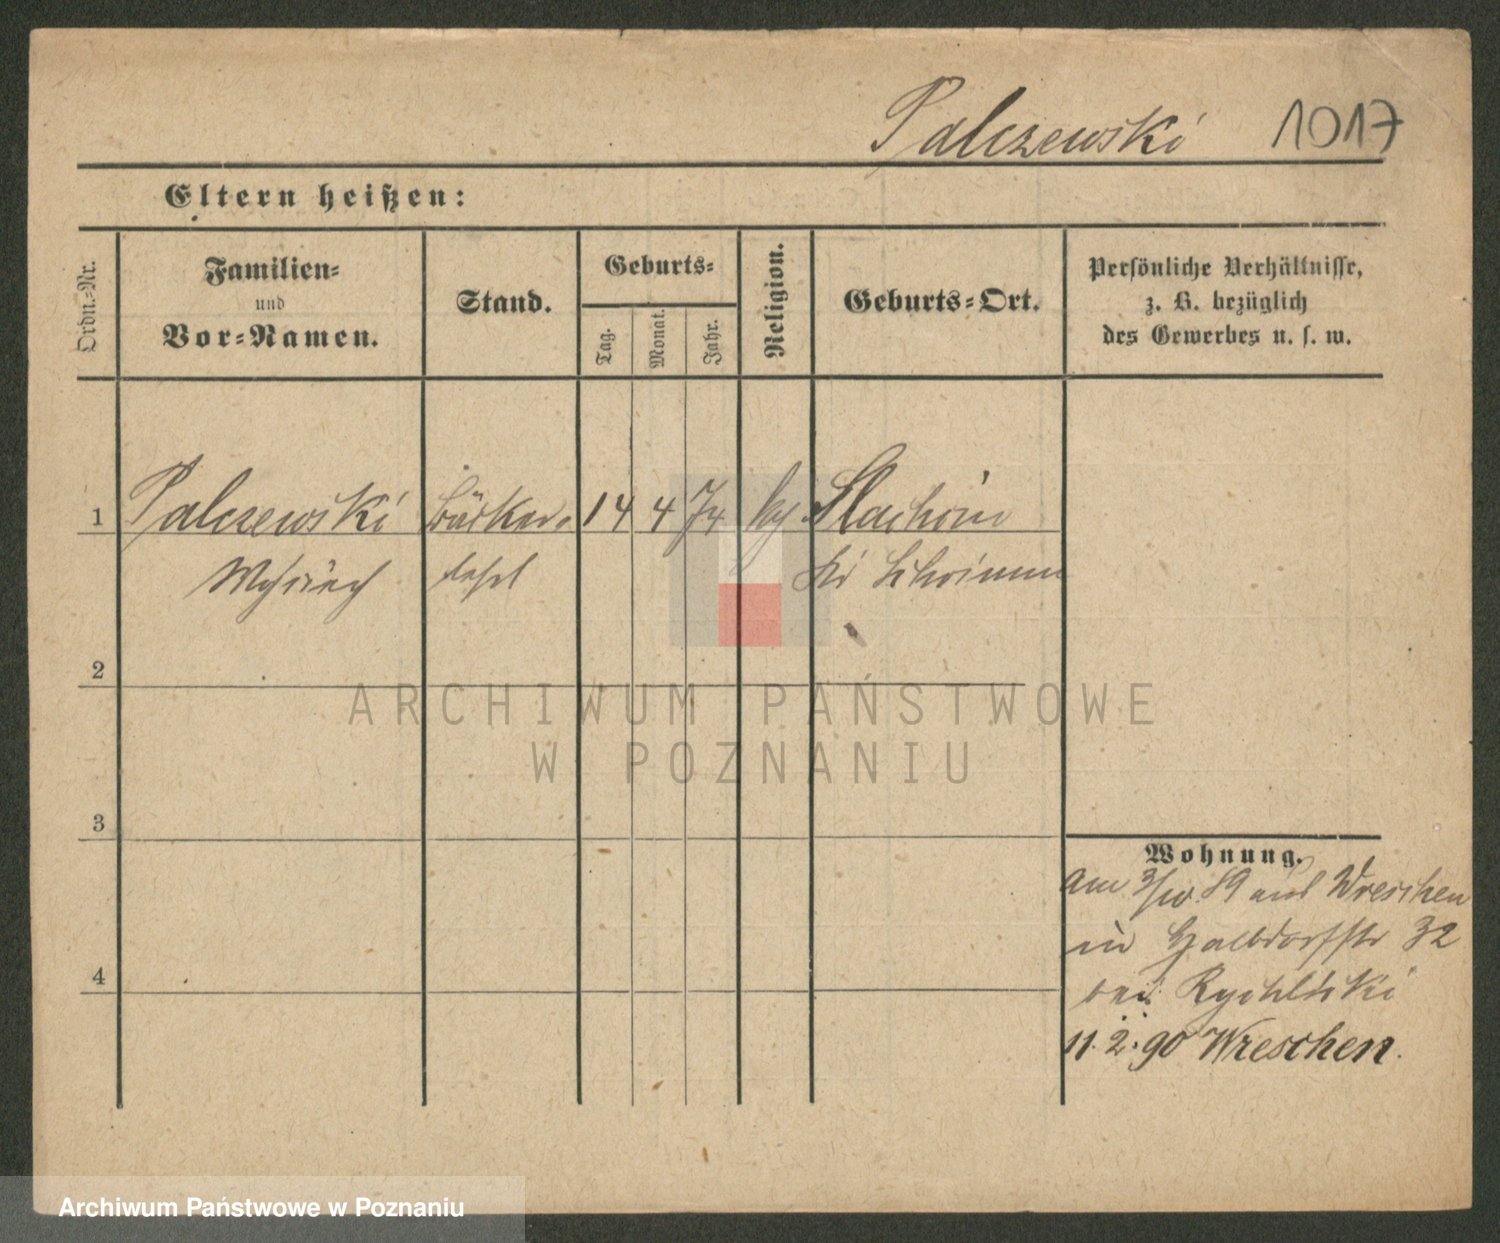 Palczewski 1017
Eltern heißen:
Ordn.-Nr.
Familien-
und
Vor-Namen.
Stand.
Geburts-
Tag.
Monat.
Jahr.
Religion.
Geburts-Ort.
Persönliche Verhältnisse,
z. B. bezüglich
des Gewerbes u. s. w.
1 Palczewski Bäcker- 14 4 74
2
3
4
Wohnung.
Am 3/10 89 aus Wreschen
in Halbdorfstr 32
bei Rychlicki
11. 2. 90 Wreschen.
ARCHIWUM PAŃSTWOWE
W POZNANIU
Archiwum Państwowe w Poznaniu